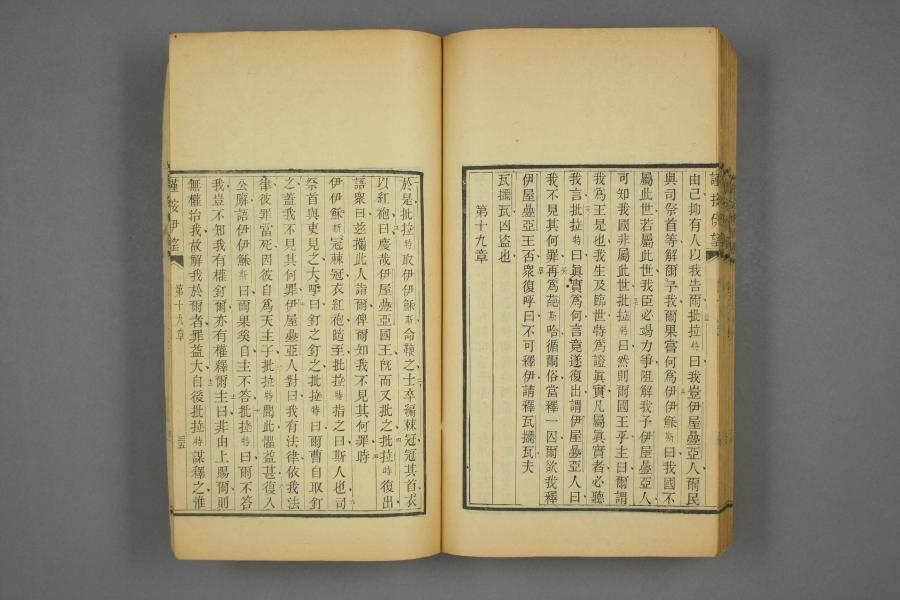 謹按伊望
由己抑有人以我告爾批拉特曰我豈伊屋疊亞人爾民
與司祭首等解爾予我爾果嘗何爲伊伊穌斯曰我國不
屬此世若屬此世我臣必竭力爭阻解我予伊屋疊亞人
可知我國非屬此世批拉特曰然則爾國王乎主曰爾謂
我爲王是也我生及臨世特爲證眞實凡屬眞實者必聽
我言批拉特曰眞實爲何言竟遂復出謂伊屋疊亞人曰
我不見其何罪再爲葩斯哈循爾俗當釋一囚爾欲我釋
伊屋疊亞王否衆復呼曰不可釋伊請釋瓦攎瓦夫
瓦攎瓦囚盜也
第十九章
於是批拉特取伊伊穌斯命鞭之士卒編棘冠冠其首衣
以紅袍曰慶哉伊屋疊亞國王旣而又批之批拉特復出
語衆曰玆攜此人詣爾俾爾知我不見其何罪時
伊伊穌斯冠棘冠衣紅袍隨至批拉特指之曰斯人也司
祭首與吏見之大呼曰釘之釘之批拉特曰爾曹自取釘
之蓋我不見其何罪伊屋疊亞人對曰我有法律依我法
律彼罪當死因彼自爲天主子批拉特聞此懼益甚復入
公廨語伊伊穌斯曰爾果奚自主不答批拉特曰爾不答
我豈不知我有權釘爾亦有權釋爾主曰非由上賜爾則
無權治我故解我於爾者罪益大自後批拉特謀釋之惟
謹按伊望
第十九章
三五